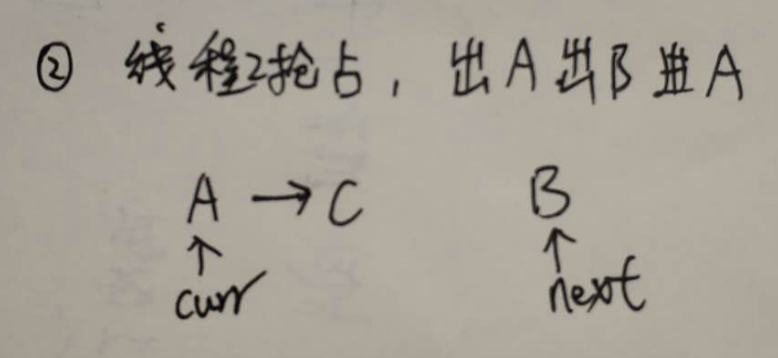 ② 线程2抢占，出A出B进A
A → C B
↑ ↑
curr next